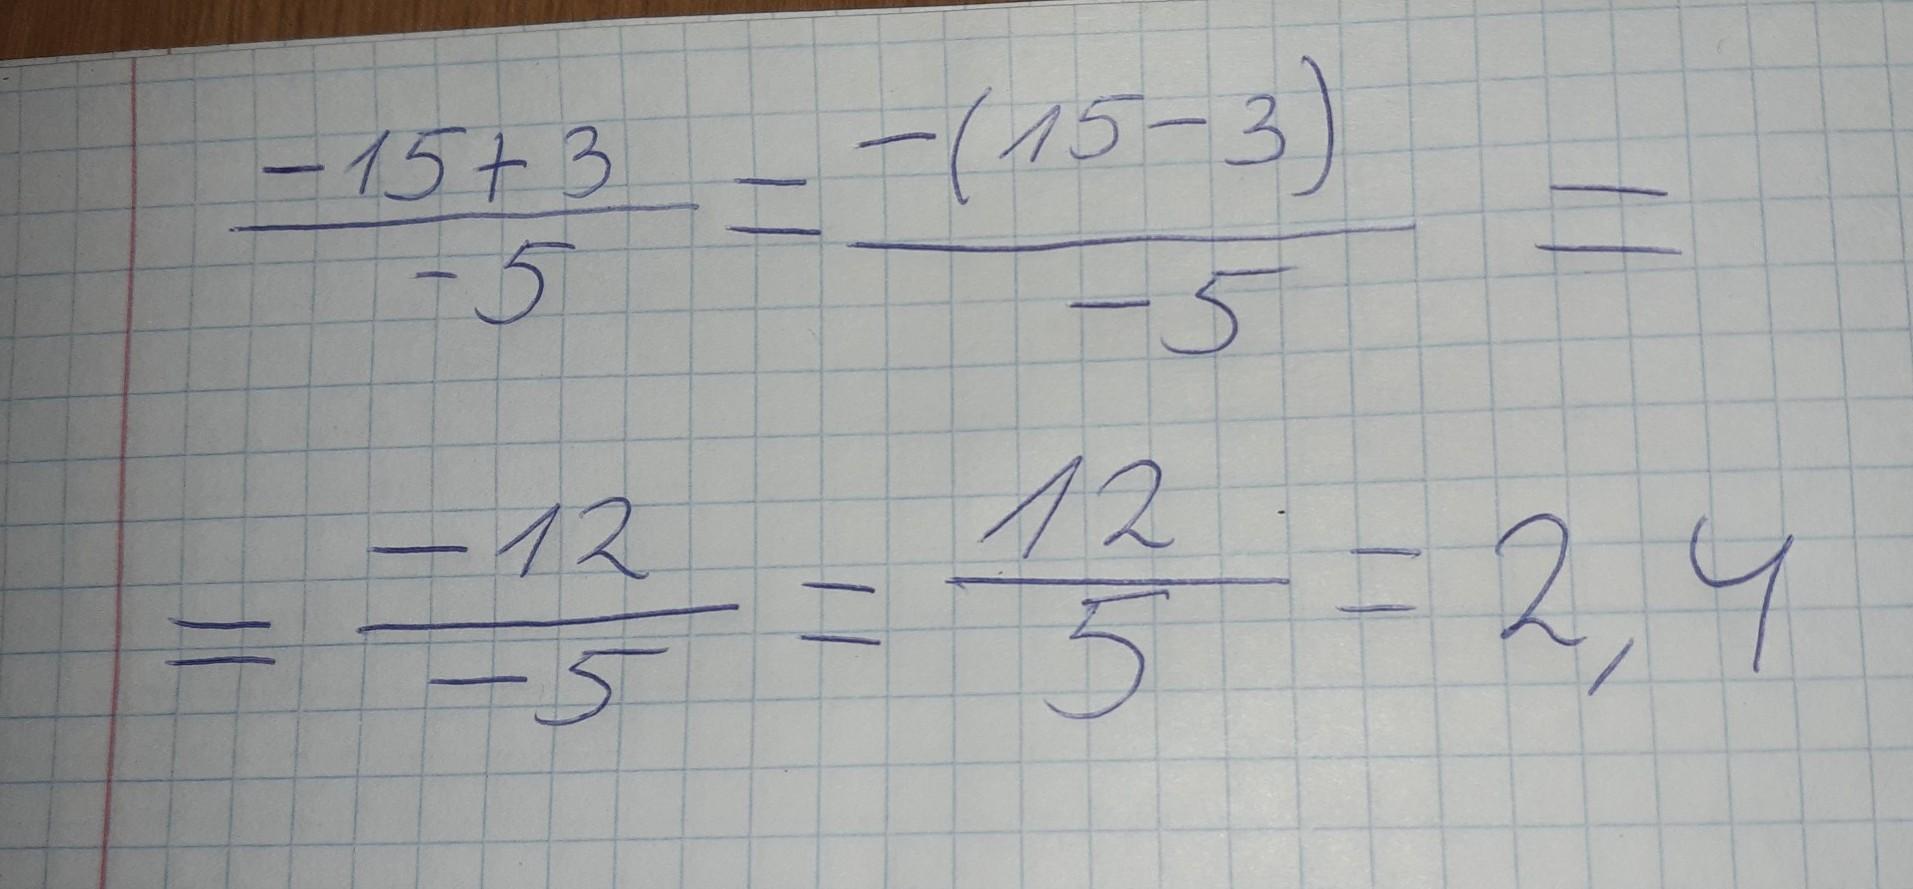 \frac{-15+3}{-5} = \frac{-(15-3)}{-5} =
= \frac{-12}{-5} = \frac{12}{5} = 2,4